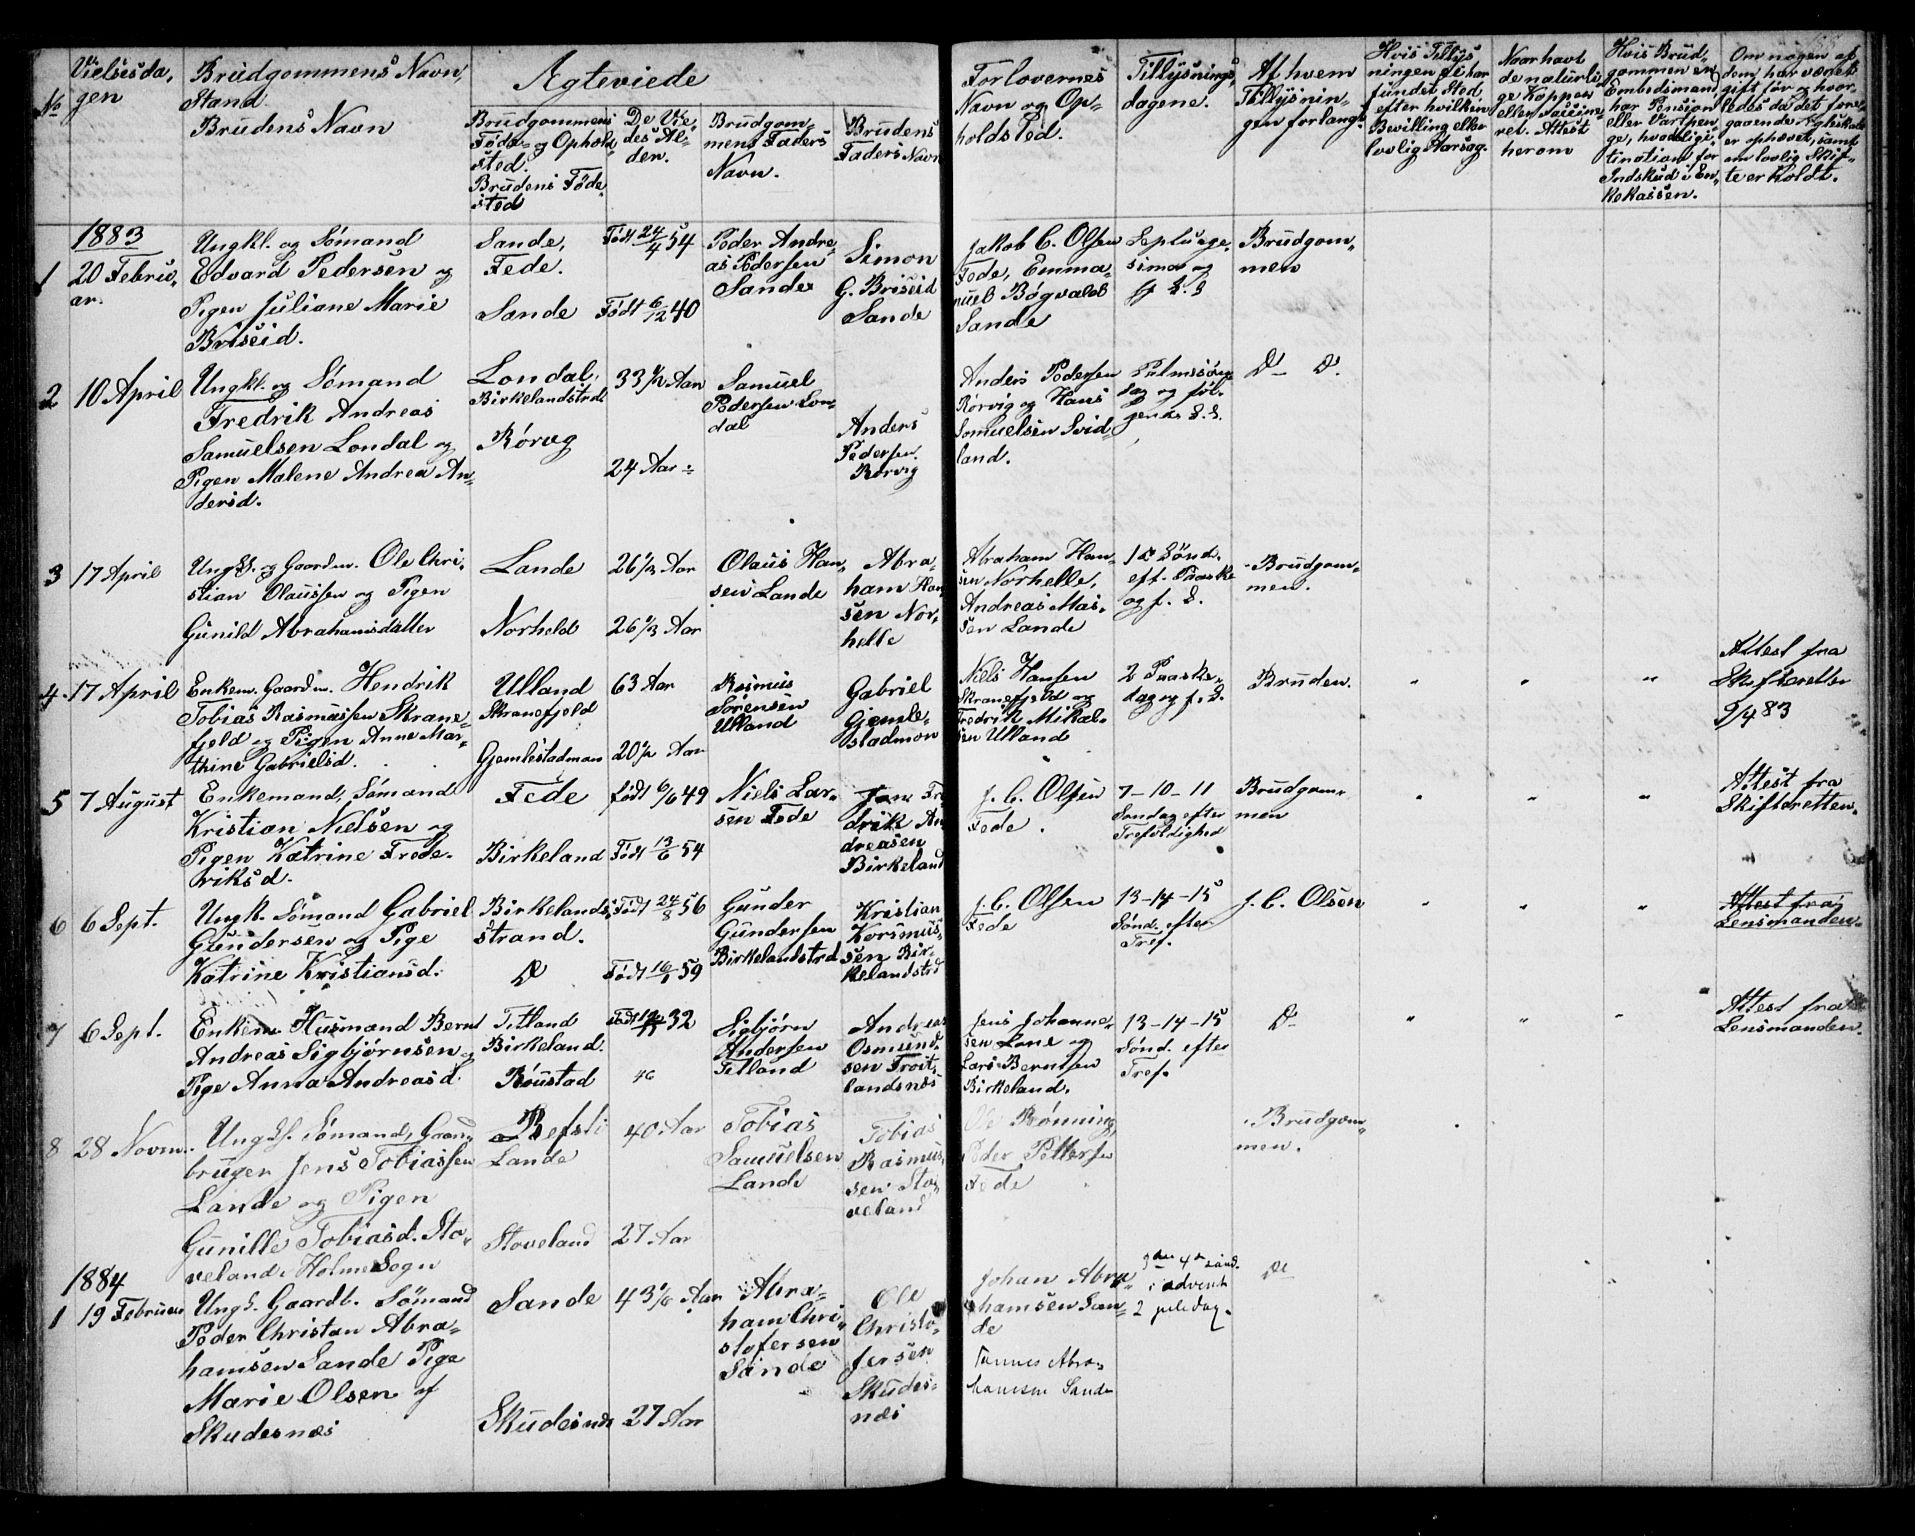 No
Vielsesda,
gen
Brudgommens Navn,
Stand.
Brudens Navn
Ægteviede
Brudgommens
Føde- og Ophold
sted.
Brudens Føde
sted
De Vie-
des Al-
der.
Brudgom-
mens Faders
Navn.
Brudens
Faders Navn
Forlovernes
Navn og Op-
holdsted.
Tillysnings
dagene.
Af hvem
Tillysnin-
gen forlangt
Hvis Tillys
ningen ei har
fundet Sted
efter hvilken
Bevilling eller
lovlig Aarsag.
Naar havt
de naturli
ge Kopper
eller vaccine-
ret. Attest
herom
Hvis Brud-
gommen en
Embedsmand
har Pension
eller Vartpen
ge, hvad legi-
timation for
Indskud i En-
kekassen.
Om nogen af
dem har været
gift før og hvor-
ledes da det fore-
gaaende Ægteskab
er ophævet, samt
om lovlig Skif-
te er holdt.
1883
1
20 Februˌ
ar.
Ungkl. og Sømand
Edvard Pedersen og
Pigen Juliane Marie
Briseid.
Sande,
Fede.
Sande
Født 24/4 54
Født 6/12 40
Peder Andre-
as Pedersen
Sande
Simon
G. Briseid
Sande
Jakob C. Olsen
Fede, Emma-
nuel Bøgvald
Sande
Septuage-
sima og
Brudgom-
men
2
10 April
Ungkl. og Sømand
Fredrik Andreas
Samuelsen Londal og
Pigen Malene Andrea An-
dersd.
Londal,
Birkelandstrd
Rørvg
33 1/2 Aar
24 Aar
Samuel
Pedersen Lon-
dal
Anders
Pedersen
Rørvig
Anders Pedersen
Rørvig og Hans
Samuelsen Svid-
land.
Palmesøn-
dag og føl-
gende S.
D- D.
3
17 April
Ungkl. og Gaardm. Ole Chri-
stian Olaussen og Pigen
Gunild Abrahamsdatter
Lande
Norheld
26 1/3 Aar
26 1/3 Aar
Olaus Han-
sen Lande
Abra-
ham Han
sen Nor-
helle
Abraham Han-
sen Norhelle,
Andreas Mas-
sen Lande
1ste Sønd.
eft. Paaske
og f. S.
Brudgom-
men.
4
17 April
Enkem. Gaardm. Hendrik
Tobias Rasmussen Skrane-
fjeld og Pigen Anne Mar-
thine Gabrielsd.
Ulland
Skranefjeld
Gjemlestadmon
63 Aar
20 1/2 Aar
Rasmus
Sørensen
Ulland
Gabriel
Gjemle-
stadmon
Niels Hansen
Skranefjeld og
Fredrik Mikal-
sen Ulland
2 Paaske-
dag og f. S.
Bruden.
Attest fra
Skifteretten
9/4 83
5
7 August
Enkemand, Sømand
Kristian Nielsen og
Pigen Katrine Frede-
riksd.
Fede
Birkeland
født 6/6 49
Født 13/6 54
Niels Lar-
sen Fede
Fre
drik An
dreasen
Birkeland
J. C. Olsen
Fede
7-10-11
Søndag efter
Trefoldighed
Brudgom-
men
Attest fra
Skifteretten.
6
6 Sept.
Ungk. Sømand Gabriel
Gundersen og Pige
Katrine Kristiansd.
Birkelands,
strand.
D
Født 24/8 56
Født 16/1 59
Gunder
Gundersen
Birkelandstrd
Kristian
Korsmus-
sen Bir-
kelandstrd
J. C. Olsen
Fede
13-14-15
Sønd. efter
Tref.
J. C. Olsen
Attest fra
Lensmanden.
7
6 Sept.
Enkem Husmand Bernt
Andreas Sigbjørnsen og
Pige Anna Andreasd.
Titland
Birkeland.
Røustad
32
46
Sigbjørn
Andersen
Titland
Andreas
Osmund-
sen Troit,
landsnæs
Jens Johanne-
sen Lone og
Lars Berntsen
Birkeland.
13-14-15
Sønd. efter
Tref.
D-
Attest fra
Lensmanden.
8
28 Novm.
Ungkl. Sømand, Gaard
bruger Jens Tobiassen
Lande og Pigen
Gunille Tobiasd. Sto-
veland i Holme Sogn
Refsti
Lande
Stoveland
40 Aar
27 Aar
Tobias
Samuelsen
Lande
Tobias
Rasmus-
sen Sto-
veland
Ole Rønning
Peder Pettersen
Fede
Brudgom-
men.
1884
1
19 Februar
Ungk. Gaardb. Sømand
Peder Christan Abra-
hamsen Sande Pige
Marie Olsen af
Skudesnæs
Sande
Skudesnæs
43 1/6 Aar
27 Aar
Abra-
ham Chri-
stofersen
Sande
Ole
Christo-
fersen
Skudes-
næs
Johan Abra-
hamsen San-
de
Tønnes Abra-
hamsen Sande
3die 4de sønd.
i advent
2 juledag.
D